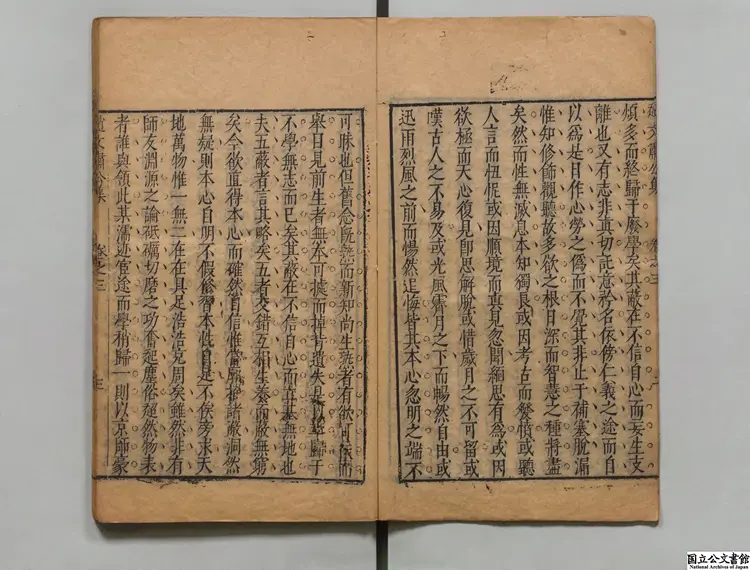 煩多而終歸于廢學矣其蔽在不信自心而妄生支
離也又有志非真切託意矜名依傍仁義之途而自
以為是日作心勞之偽而不覺其非止于補塞脫漏
惟知修飾觀聽故多欲之根日深而智慧之種將盡
矣然而性無滅息本知獨長或因考古而發憤或聽
人言而忸怩或因順境而真見忽開緬思有為或因
欲極而天心復見即思解脫或惜歲月之不可留或
嘆古人之不易及或光風霽月之下而暢然自由或
迅雨烈風之前而惕然追悔皆其本心忽明之端不
卷之三
可昧也但舊念既無而新知尚生
舉目見前生者無本可據而
遺失是以終歸于
不學無志而已矣其蔽在不信自心而真基無地也
夫五蔽者言其略矣五者交錯互相生養而蔽無窮
矣今欲直得本心而確然自信惟當廓摧諸蔽洞然
無疑則本心自明不假修習本性自足不俟旁求天
地萬物惟一無二在在具足浩浩充周矣雖然非有
師友淵源之論砥礪切磨之功奮起塵俗超然物表
者誰與領此某濡迹宦途而學稍歸一則以京師豪
卷之三
国立公文書館
National Archives of Japan